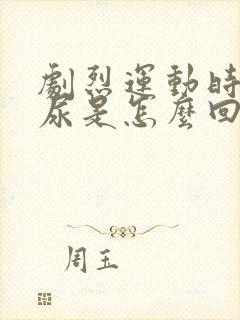 劇烈運動時
尿是怎麼回
周玉